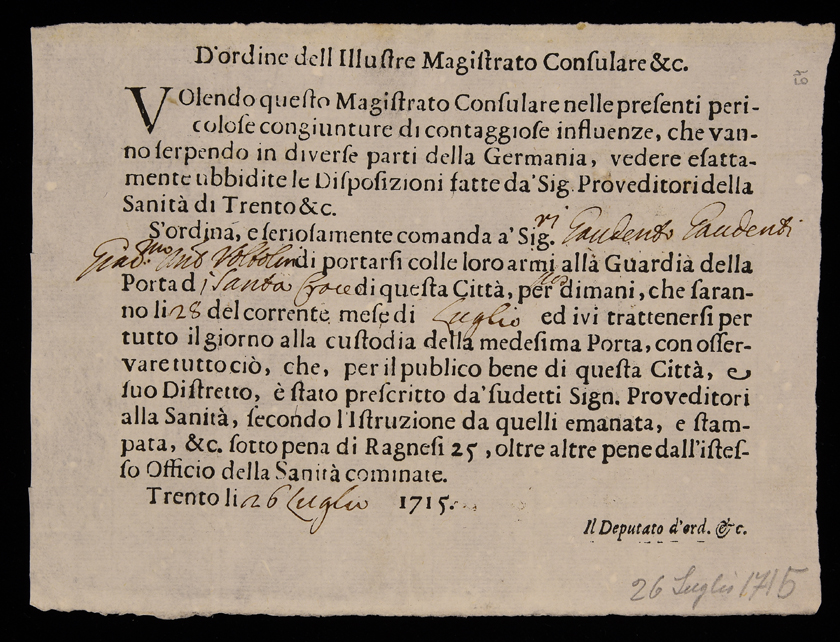 D'ordine dell Illuſtre Magiſtrato Conſulare &c.
VOlendo queſto Magiſtrato Conſulare nelle preſenti peri-
coloſe congiunture di contaggioſe influenze, che van-
no ſerpendo in diverſe parti della Germania, vedere eſatta-
mente ubbidite le Diſpoſizioni fatte da' Sig. Proveditori della
Sanità di Trento &c.
S'ordina, e ſerioſamente comanda a' Sig.ri Gaudento Gaudenti
Ant Voltolin di portarſi colle loro armi allà Guardia della
Porta di Santa Croce di queſta Città, per dimani, che ſaran-
no li 28 del corrente meſe di Luglio ed ivi trattenerſi per
tutto il giorno alla cuſtodia della medeſima Porta, con oſſer-
vare tutto ciò, che, per il publico bene di queſta Città, e
ſuo Diſtretto, è ſtato preſcritto da' ſudetti Sign. Proveditori
alla Sanità, ſecondo l'Iſtruzione da quelli emanata, e ſtam-
pata, &c. ſotto pena di Ragneſi 25, oltre altre pene dall'iſteſ-
ſo Officio della Sanità cominate.
Trento li 26 Luglio 1715.
Il Deputato d'ord. &c.
26 Luglio 1715